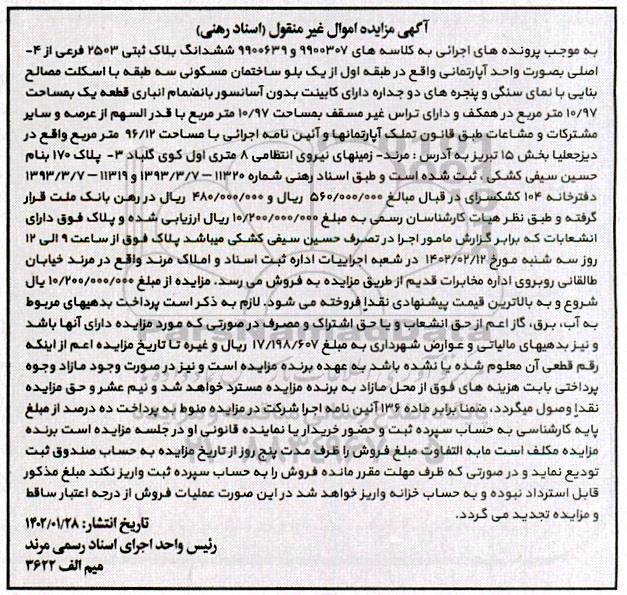 آگهی مزایده اموال غیر منقول (اسناد رهنی)
به موجب پرونده های اجرائی به کلاسه های ۹۹۰۰۳۰۷ و ۹۹۰۰۶۳۹ ششدانگ پلاک ثبتی ۲۵۰۳ فرعی از ۴-
اصلی بصورت واحد آپارتمانی واقع در طبقه اول از یک بلو ساختمان مسکونی سه طبقه با اسکلت مصالح
بنایی با نمای سنگی و پنجره های دو جداره دارای کابینت بدون آسانسور بانضمام انباری قطعه یک بمساحت
۱۰/۹۷ متر مربع در همکف و دارای تراس غیر مسقف بمساحت ۱۰/۹۷ متر مربع با قدر السهم از عرصه و سایر
مشترکات و مشاعات طبق قانون تملک آپارتمانها و آئین نامه اجرائی با مساحت ۹۶/۱۲ متر مربع واقع در
دیزجعلیا بخش ۱۵ تبریز به آدرس : مرند- زمینهای نیروی انتظامی ۸ متری اول کوی گلباد ۳- پلاک ۱۷۰ بنام
حسین سیفی کشکی ، ثبت شده است و طبق اسناد رهنی شماره ۱۱۳۲۰ – ۱۳۹۳/۳/۷ و ۱۱۳۱۹ – ۱۳۹۳/۳/۷
دفترخانه ۱۰۴ کشکسرای در قبال مبالغ ۵۶۰/۰۰۰/۰۰۰ ریال و ۴۸۰/۰۰۰/۰۰۰ ریال در رهن بانک ملت قرار
گرفته و طبق نظر هیات کارشناسان رسمی به مبلغ ۱۰/۲۰۰/۰۰۰/۰۰۰ ریال ارزیابی شده و پلاک فوق دارای
انشعابات که برابر گزارش مامور اجرا در تصرف حسین سیفی کشکی میباشد پلاک فوق از ساعت ۹ الی ۱۲
روز سه شنبه مورخ ۱۴۰۲/۰۲/۱۲ در شعبه اجراییات اداره ثبت اسناد و املاک مرند واقع در مرند خیابان
طالقانی روبروی اداره مخابرات قدیم از طریق مزایده به فروش می رسد. مزایده از مبلغ ۱۰/۲۰۰/۰۰۰/۰۰۰ یال
شروع و به بالاترین قیمت پیشنهادی نقدا فروخته می شود. لازم به ذکر است پرداخت بدهیهای مربوط
به آب، برق، گاز اعم از حق انشعاب و یا حق اشتراک و مصرف در صورتی که مورد مزایده دارای آنها باشد
و نیز بدهیهای مالیاتی و عوارض شهرداری به مبلغ ۱۷/۱۹۸/۶۰۷ ریال و غیره تا تاریخ مزایده اعم از اینکه
رقم قطعی آن معلوم شده یا نشده باشد به عهده برنده مزایده است و نیز در صورت وجود مازاد وجوه
پرداختی بابت هزینه های فوق از محل مازاد به برنده مزایده مسترد خواهد شد و نیم عشر و حق مزایده
نقدا وصول میگردد، ضمنا برابر ماده ۱۳۶ آئین نامه اجرا شرکت در مزایده منوط به پرداخت ده درصد از مبلغ
پایه کارشناسی به حساب سپرده ثبت و حضور خریدار یا نماینده قانونی او در جلسه مزایده است برنده
مزایده مکلف است مابه التفاوت مبلغ فروش را ظرف مدت پنج روز از تاریخ مزایده به حساب صندوق ثبت
تودیع نماید و در صورتی که ظرف مهلت مقرر مانده فروش را به حساب سپرده ثبت واریز نکند مبلغ مذکور
قابل استرداد نبوده و به حساب خزانه واریز خواهد شد در این صورت عملیات فروش از درجه اعتبار ساقط
و مزایده تجدید می گردد.
تاریخ انتشار: ۱۴۰۲/۰۱/۲۸
رئیس واحد اجرای اسناد رسمی مرند
میم الف ۳۶۲۲